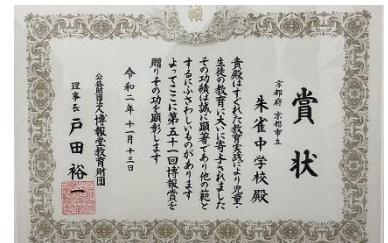 賞状
京都府 京都市立
朱雀中学校殿
貴殿はすぐれた教育実践により児童・
生徒の教育に大いに寄与されました
その功績は誠に顕著であり他の範と
するにふさわしいものがあります
よってここに第五十一回博報賞を
贈りその功を顕彰します
令和二年十一月十三日
公益財団法人博報堂教育財団
理事長 戸田裕一